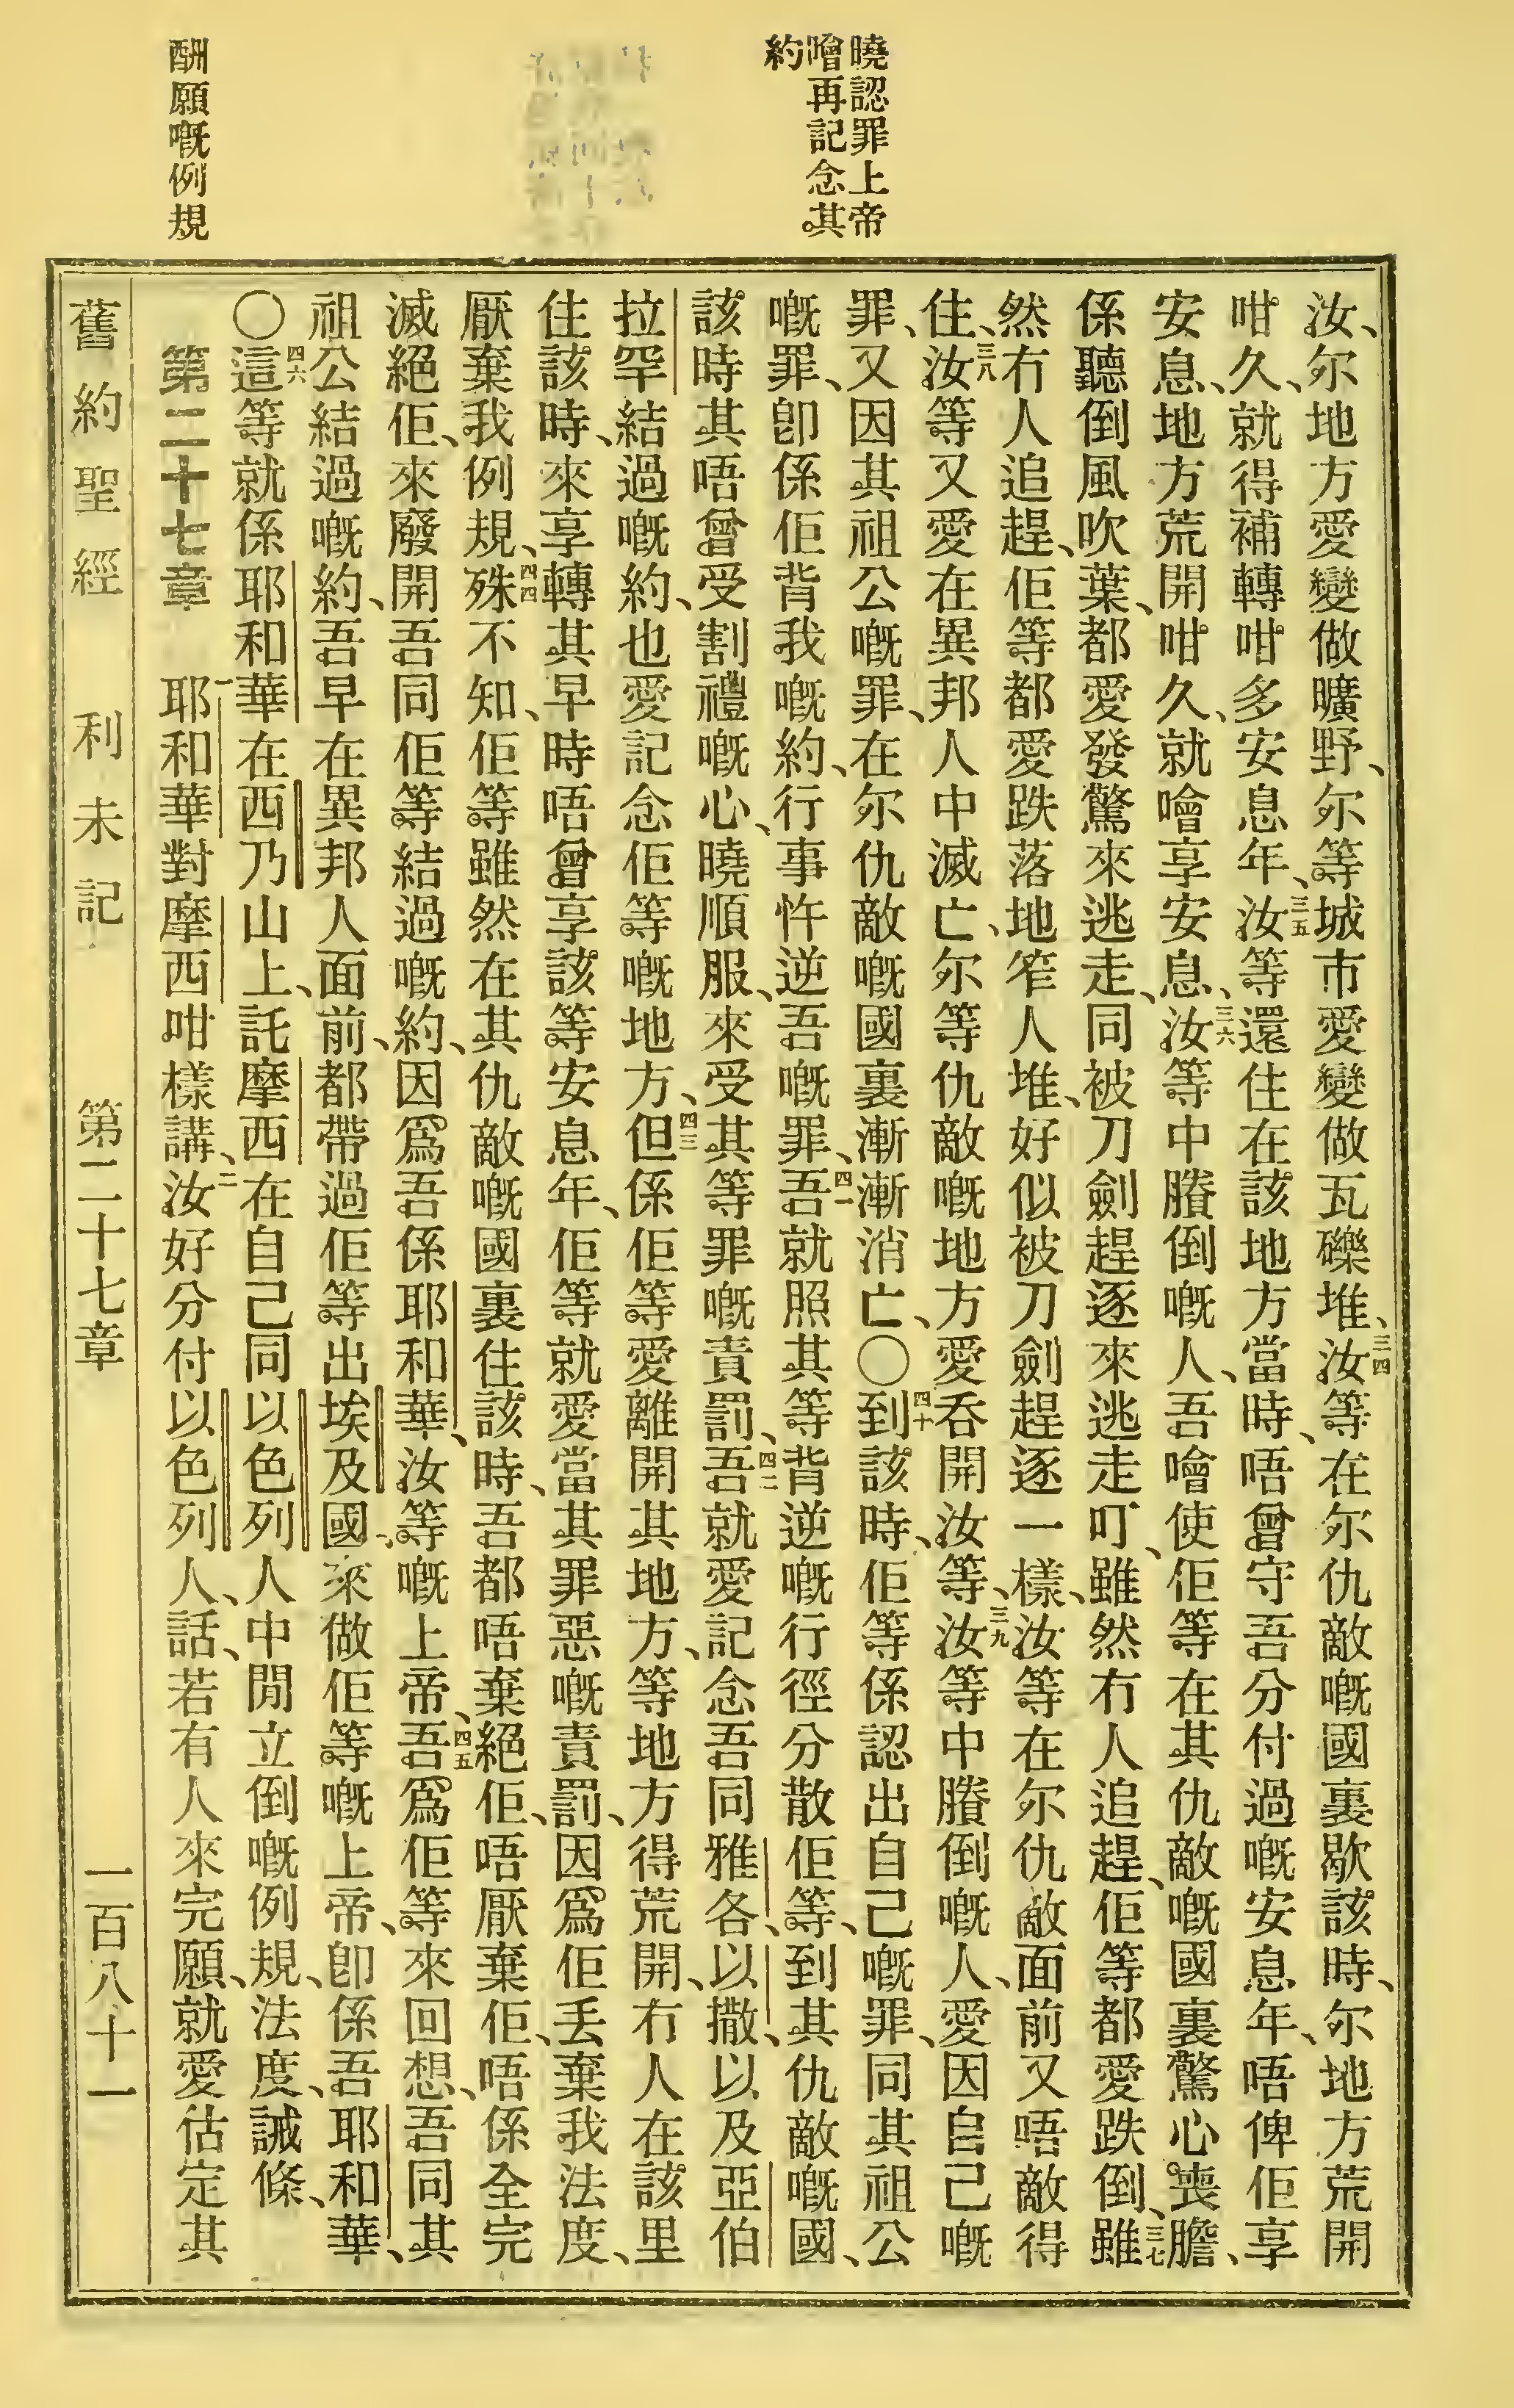 曉認罪上帝
噲再記念其
約
酬願嘅例規
汝、尔地方愛變做曠野、尔等城市愛變做瓦礫堆、三四汝等在尔仇敵嘅國裏歇該時、尔地方荒開
咁久、就得補轉咁多安息年、三五汝等還住在該地方當時、唔曾守吾分付過嘅安息年、唔俾佢享
安息、地方荒開咁久、就噲享安息、三六汝等中賸倒嘅人、吾噲使佢等在其仇敵嘅國裏驚心喪膽、
係聽倒風吹葉、都愛發驚來逃走、同被刀劍趕逐來逃走叮、雖然冇人追趕、佢等都愛跌倒、三七雖
然冇人追趕、佢等都愛跌落地笮人堆、好似被刀劍趕逐一樣、汝等在尔仇敵面前又唔敵得
住、三八汝等又愛在異邦人中滅亡、尔等仇敵嘅地方愛吞開汝等、三九汝等中賸倒嘅人、愛因自己嘅
罪、又因其祖公嘅罪、在尔仇敵嘅國裏漸漸消亡、〇四十到該時、佢等係認出自己嘅罪、同其祖公
嘅罪、卽係佢背我嘅約、行事忤逆吾嘅罪、四一吾就照其等背逆嘅行徑分散佢等、到其仇敵嘅國、
該時其唔曾受割禮嘅心、曉順服、來受其等罪嘅責罰、四二吾就愛記念吾同雅各、以撒、以及亞伯
拉罕結過嘅約、也愛記念佢等嘅地方、四三但係佢等愛離開其地方、等地方得荒開、冇人在該里
住該時、來享轉其早時唔曾享該等安息年、佢等就愛當其罪惡嘅責罰、因爲佢丟棄我法度、
厭棄我例規、四四殊不知、佢等雖然在其仇敵嘅國裏住該時、吾都唔棄絕佢、唔厭棄佢、唔係全完
滅絕佢、來廢開吾同佢等結過嘅約、因爲吾係耶和華、汝等嘅上帝、四五吾爲佢等來回想、吾同其
祖公結過嘅約、吾早在異邦人面前、都帶過佢等出埃及國、來做佢等嘅上帝、卽係吾耶和華、
〇四六這等就係耶和華在西乃山上、託摩西在自己同以色列人中間立倒嘅例規、法度、誡條、
第二十七章　一耶和華對摩西咁樣講、二汝好分付以色列人、話、若有人來完願、就愛估定其
舊約聖經　利未記　第二十七章　一百八十一